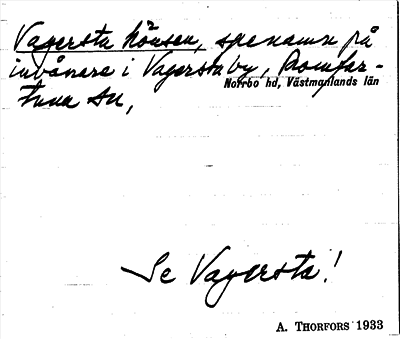 Vagersta hönsen, spenamn på
invånare i Vagersta by, Romfar-
tuna sn,
Norrbo hd, Västmanlands län
Se Vagersta!
A. THORFORS 1933